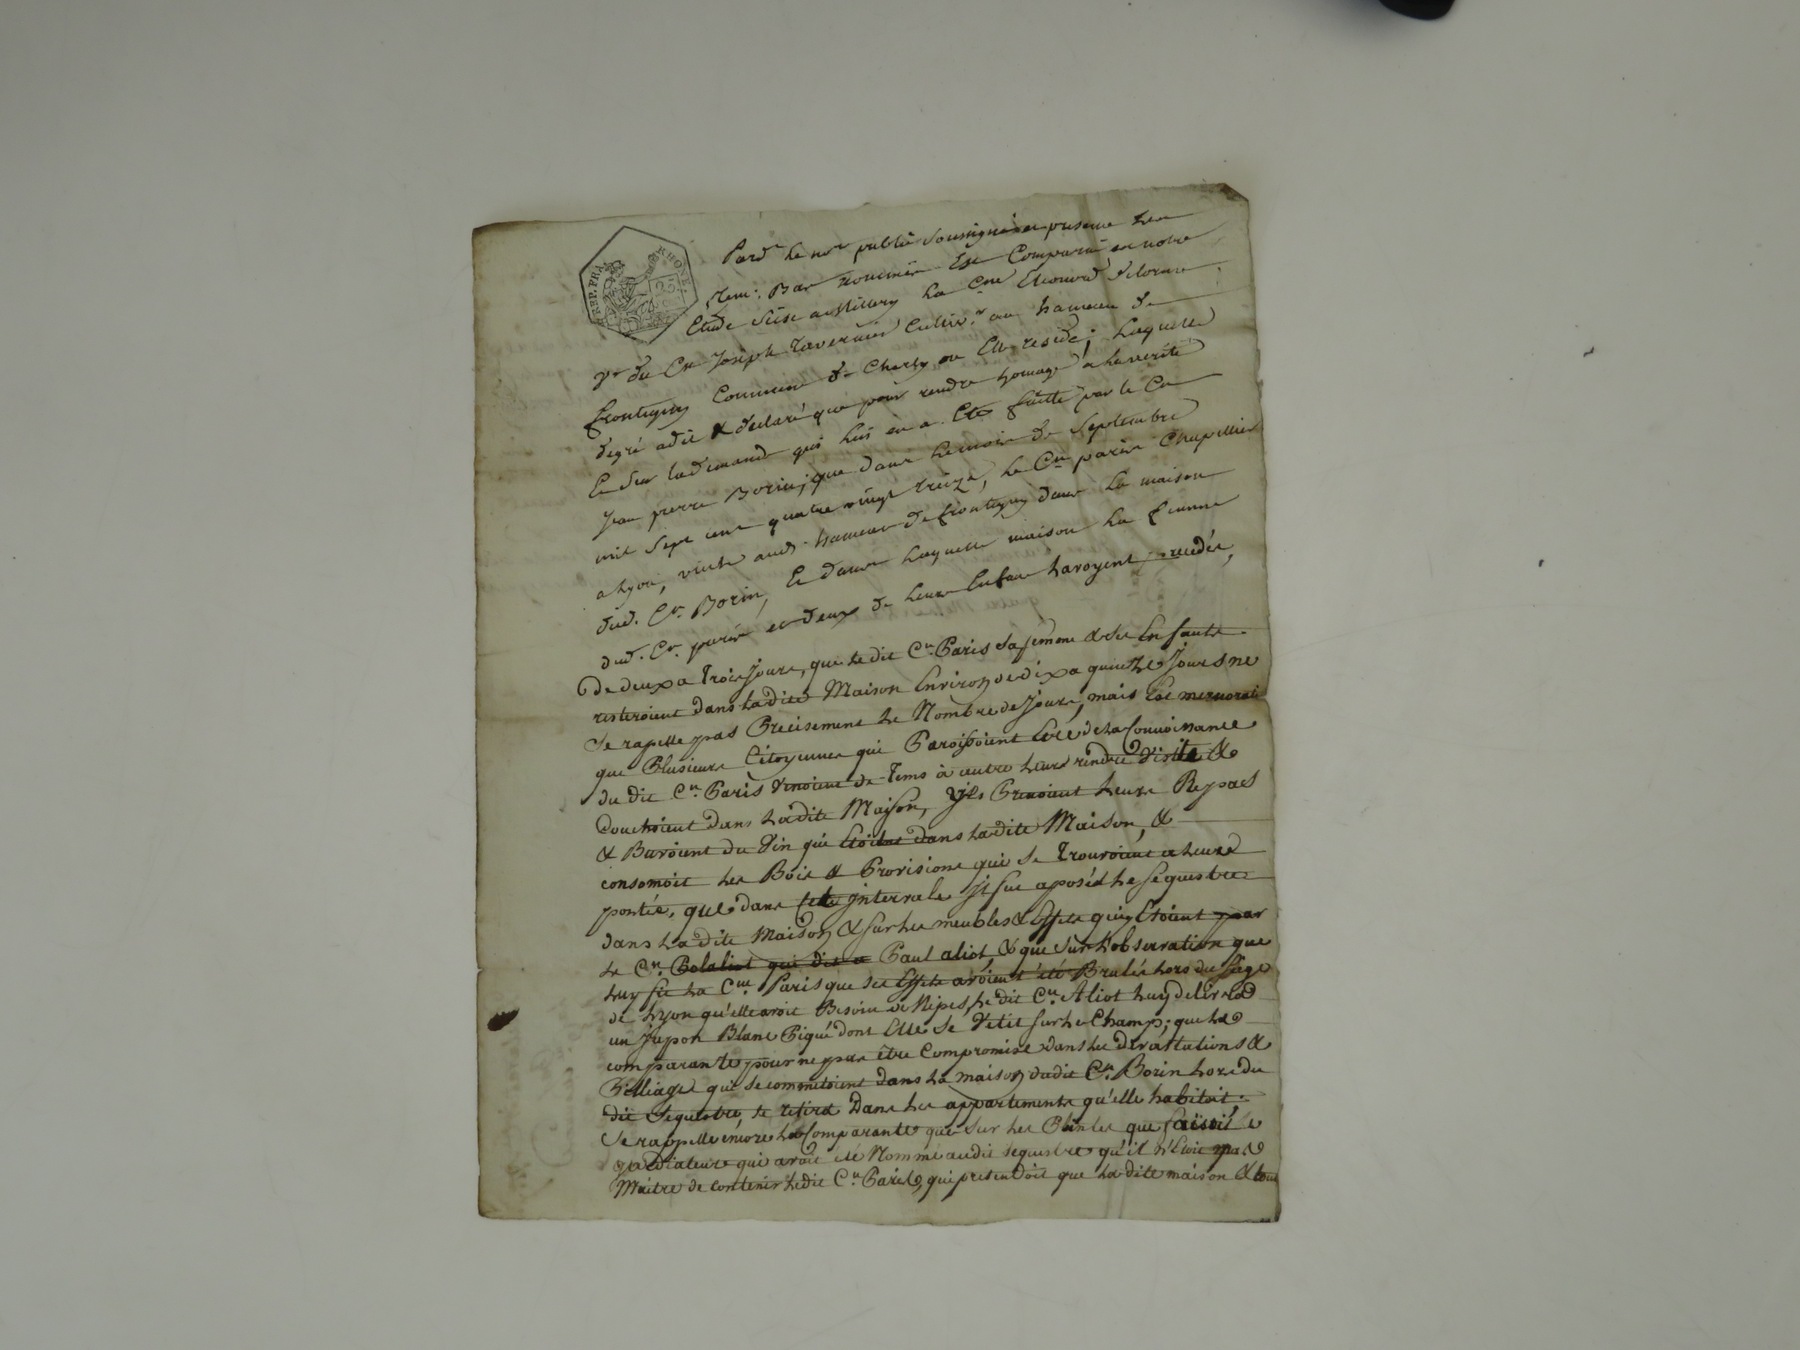 REP. FRA. RHONE.
25
Pard.t le no.re public soussigné en presence des
Tem: Bas nommés Est Comparue en notre
Etude Scise a Millery La C.ne Delorme
f.e du C.n Joseph Tavernier Cultiv.r au hameau de
frontigny Commune de Charly ou Elle reside; Laquelle
degré a dit & declaré que pour rendre homage a la verité
Et Sur la demande qui Lui en a Eté faitte par le C.n
Jean pierre Borin; que dans le mois de Septembre
mil Sept cent quatre vingt treize, le C.n paris Chapellier
a Lyon, vint aud. hameau de frontigny dans La maison
dud. C.n Borin, Et dans Laquelle maison La femme
dud. C.n paris et deux de leurs Enfans L'avoyent precedés,
de deux a Trois Jours, que le dit C.n Paris Sa femme & Ses Enfants
resterent dans la dite Maison Environ de dix a quinze Jours ne
Se rapelle pas Precisement le Nombre de Jours, mais
que Plusieurs Citoyennes qui Paroissoient Etre de la Connoissance
du dit C.n Paris Venoient de Tems à autre leurs rendre Visite &
Couchoient dans la dite Maison, yls Prenoient leurs Repas
& Buvoient du Vin qui Etoient dans la dite Maison, &
consomoit les Bois & Provisions qui Se Trouvoient a leurs
portée, que dans cete yntervale Jl fut aposéd le Sequestre
dans la dite Maison & sur les meubles & Effets quiy Etoient par
le C.n Paul aliot, & que Sur l'observation que
luy fit la C.ne Paris que Ses Effets avoient été Brulés lors du Siege
de Lyon qu'elle avoit Besoin de Nipes, le dit C.n Aliot luy delivrad
un Jupon Blanc Piqué dont Elle Se Vetit sur le Champ; que la
comparante pour ne pas être Compromise dans les dévastations &
Pilliage qui se commetoient dans la maison dudit C.n Borin hors du
dit Sequestre, se retira Dans les appartements qu'elle habitoit.
Se rappelle encore la Comparante que Sur les Plintes que faisoit le
qui avoit été Nommé audit sequestre qu'il n'Etoit pas
Maitre de contenir ledit C.n Paris, qui pretendoit que la dite maison & tous